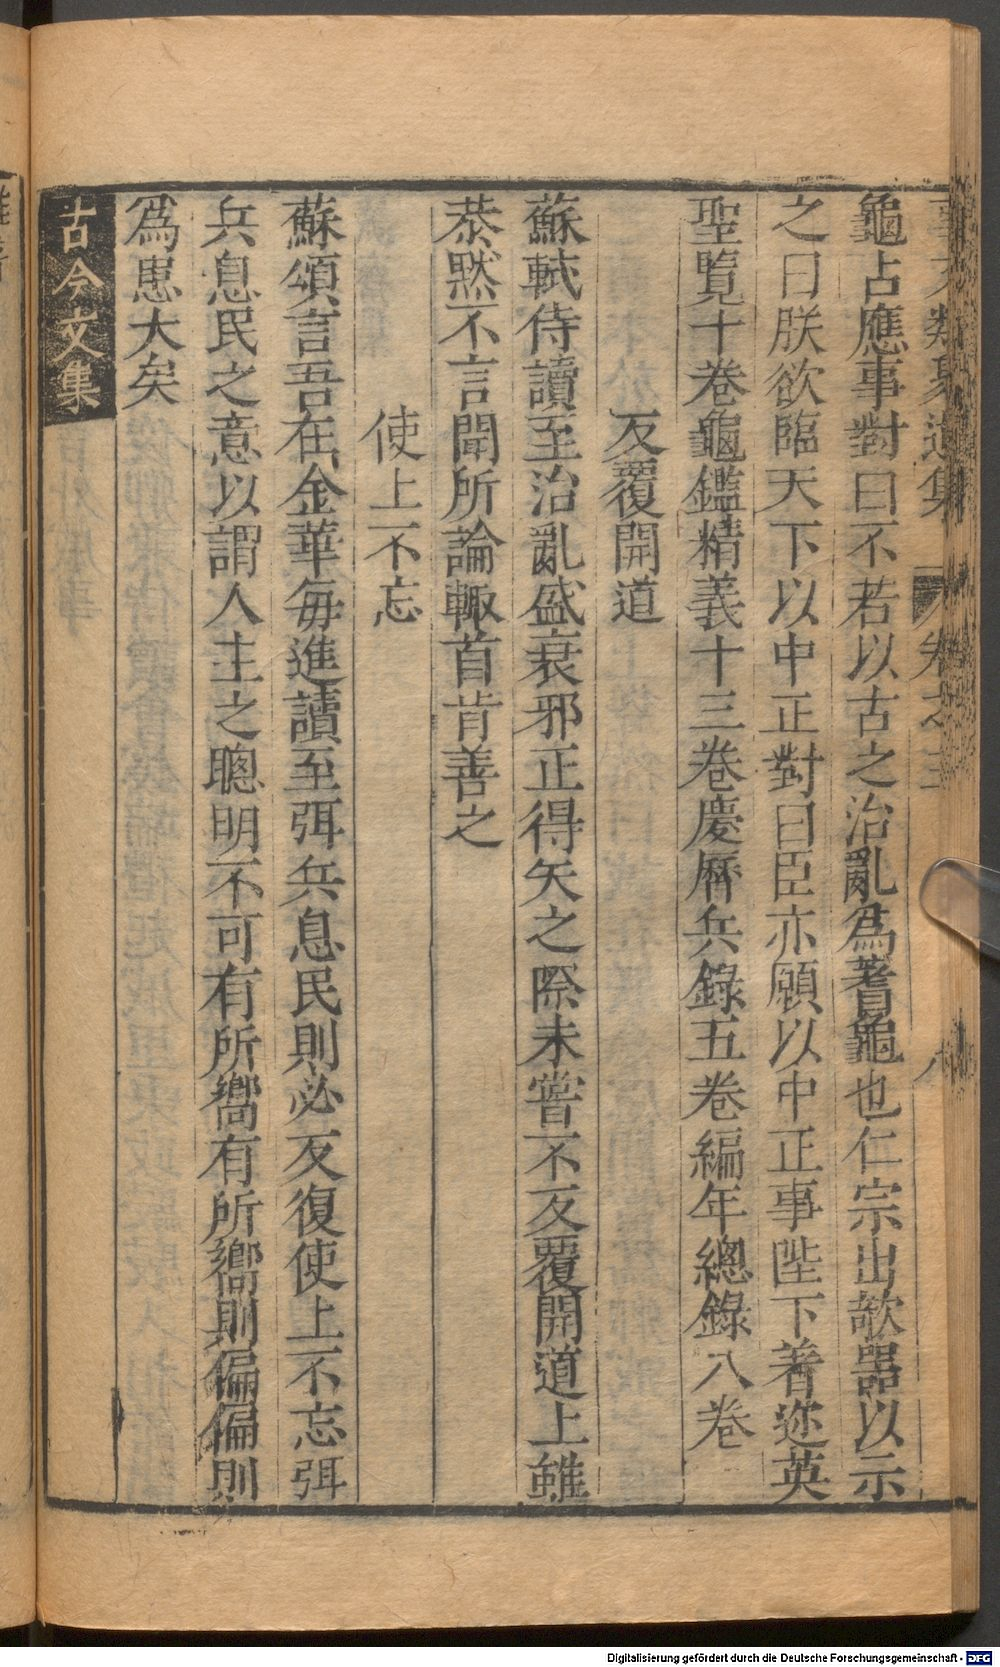 事文類聚遺集 卷之三 八
龜占應事對曰不若以古之治亂爲蓍龜也仁宗出欹器以示
之曰朕欲臨天下以中正對曰臣亦願以中正事陛下着邇英
聖覽十卷龜鑑精義十三卷慶曆兵錄五卷編年總錄八卷
反覆開道
蘇軾侍讀至治亂盛衰邪正得失之際未嘗不反覆開道上雖
恭默不言聞所論輙首肯善之
使上不忘
蘇頌言吾在金華每進讀至弭兵息民則必反復使上不忘弭
兵息民之意以謂人主之聰明不可有所嚮有所嚮則偏偏則
爲患大矣
古今文集
Digitalisierung gefördert durch die Deutsche Forschungsgemeinschaft - DFG